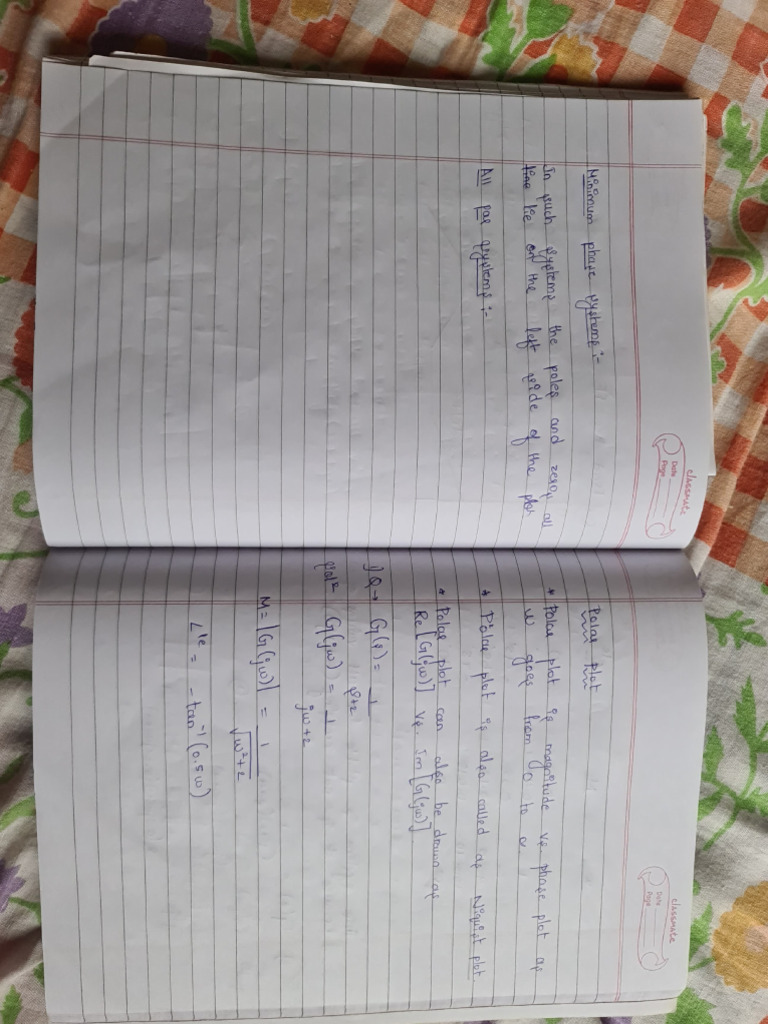 classmate
Date
Page
Minimum phase systems :-
In such systems the poles and zeros all
lie on the left side of the plot
All pas systems :-
classmate
Date
Page
Polar plot
* Polar plot is magnitude vs phase plot as
w goes from 0 to ∞
* Polar plot is also called as Niquist plot
* Polar plot can also be drawn as
Re[G(jω)] vs. Im[G(jω)]
1) Q → G(s) = 1/(s+2)
sol² G(jω) = 1/(jω+2)
M = |G(jω)| = 1/√(ω²+2)
∠le = - tan⁻¹(0.5ω)